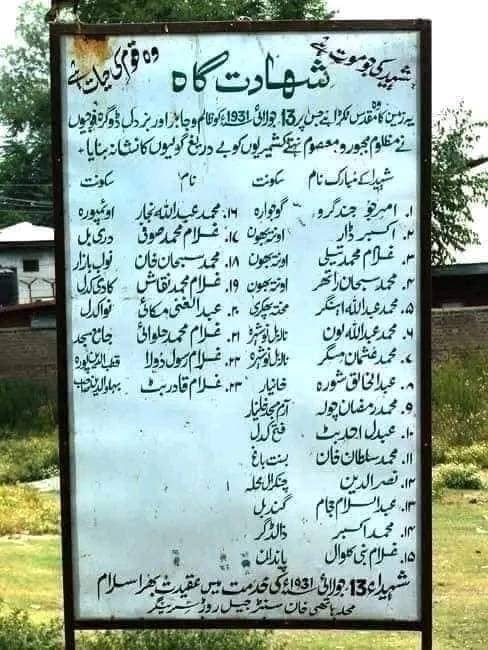 شہید کی جو موت ہے
وہ قوم کی حیات ہے
شہادت گاہ
یہ زمین کا وہ مقدس ٹکڑا ہے جس پر 13 جولائی 1931ء کو ظالم و جابر اور بزدل ڈوگرہ فوجیوں
نے مظلوم مجبور و معصوم نہتے کشمیریوں کو بے دریغ گولیوں کا نشانہ بنایا۔
شہداء کے مبارک نام سکونت نام سکونت
۱۔ امیر جو جندگرو گوجوارہ ۱۶۔ محمد عبداللہ نجار اومپورہ
۲۔ اکبر ڈار اونتہ بھون ۱۷۔ غلام محمد صوفی دری بل
۳۔ غلام محمد تیلی اونتہ بھون ۱۸۔ محمد سبحان خان نواب بازار
۴۔ محمد سبحان راتھر اونتہ بھون ۱۹۔ غلام محمد نقاش کادی کدل
۵۔ محمد عبداللہ آہنگر ۲۰۔ عبدالغنی مکائی نوا کدل
۶۔ محمد عبداللہ لون نائل نوشہرہ ۲۱۔ غلام محمد حلوائی جامع مسجد
۷۔ محمد عثمان مسگر نائل نوشہرہ ۲۲۔ غلام رسول دولا قطب الدین پورہ
۸۔ عبدالخالق شورہ خانیار ۲۳۔ غلام قادر بٹ بہاوالدین صاحب
۹۔ محمد رمضان چولہ آرم مسجد خانیار
۱۰۔ عبدل احد بٹ فتح کدل
۱۱۔ محمد سلطان خان بسنت باغ
۱۲۔ نصر الدین چنکرال محلہ
۱۳۔ عبدالسلام حجام گندبل
۱۴۔ محمد اکبر ڈالگر
۱۵۔ غلام نبی کلوال پاندان
شہداء 13 جولائی 1931ء کی خدمت میں عقیدت بھرا سلام
محلہ ہاتھی خان سنٹرل جیل روڑ سرینگر